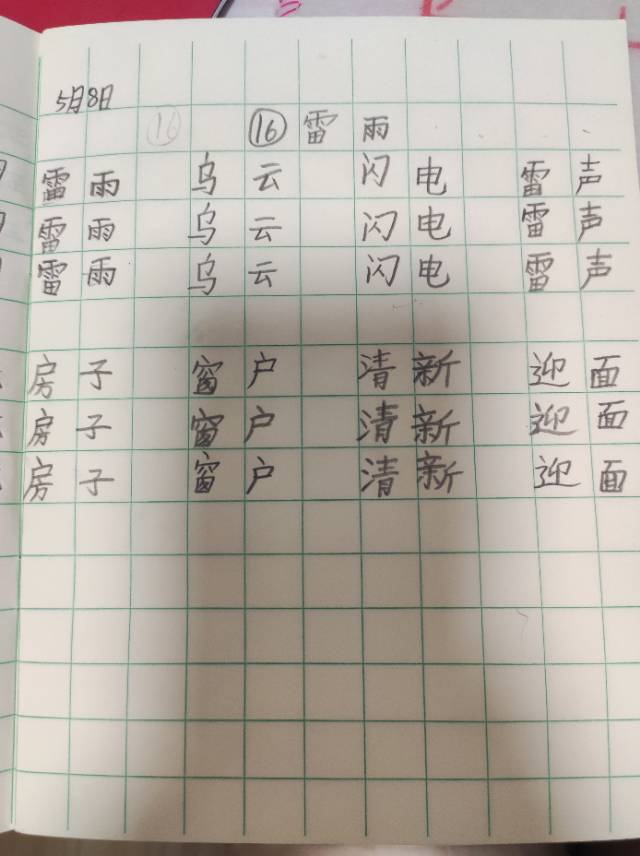 5月8日
⑯ ⑯ 雷雨
雷雨 乌云 闪电 雷声
雷雨 乌云 闪电 雷声
雷雨 乌云 闪电 雷声
房子 窗户 清新 迎面
房子 窗户 清新 迎面
房子 窗户 清新 迎面